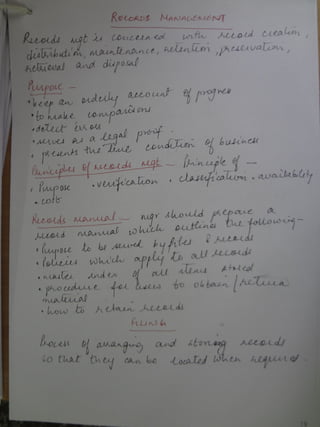 RECORDS MANAGEMENT
Records mgt is concerned with record creation,
distribution, maintenance, retention, preservation,
retrieval and disposal
Purpose -
• keep an orderly account of progress
• to make comparisons
• detect errors
• serves as a legal proof.
• presents the true condition of business
Principles of records mgt - Principle of -
• Purpose • verification • classification • availability
• cost
Records manual - mgr should prepare a
record manual which outlines the following -
• Purpose to be served by files & records
• Policies which apply to all records
• master index of all items stored
• procedure for users to obtain/return
material
• how to retain records
FILING
Process of arranging and storing records
so that they can be located when required.